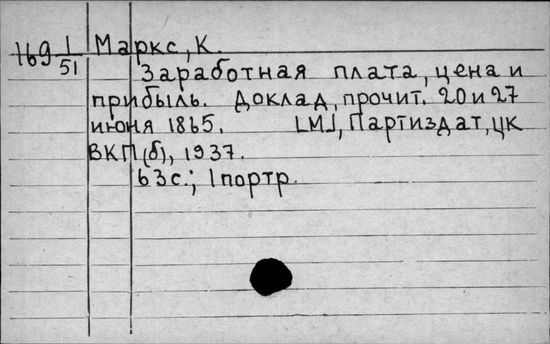 1169 1/51 Маркс, К.
Заработная плата, цена и
прибыль. Доклад, прочит. 20 и 27
июня 1865. [М], Партиздат, ЦК
ВКП(б), 1937.
63с.; 1портр.